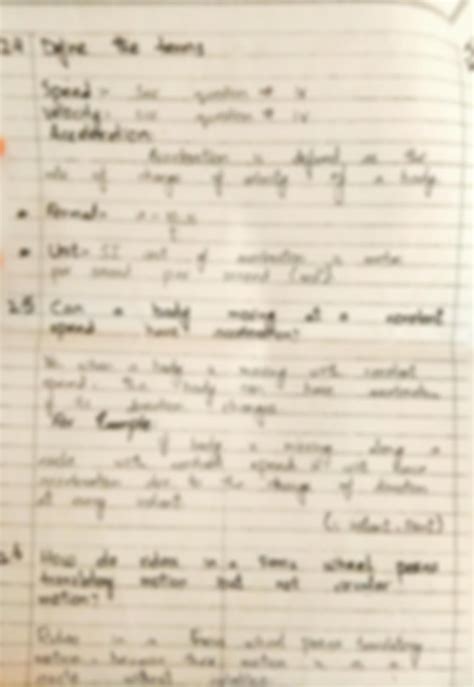 24 Define the terms
Speed:- See question # iv
Velocity:- See question # iv
Acceleration:
Acceleration is defined as the
rate of change of velocity of a body
Formula:-
Unit:- SI unit of acceleration is meter
per second per second
25 Can a body moving at a constant
speed have acceleration?
when a body is moving with constant
speed, the body can have acceleration
if its direction changes
For Example:
if body is moving along a
circle with constant speed it will have
acceleration due to the change of direction
at every instant
How do riders in a Ferris wheel possess
translatory motion but not circular
motion?
Riders in a Ferris wheel possess translatory
motion because their motion is in a
circle without rotation